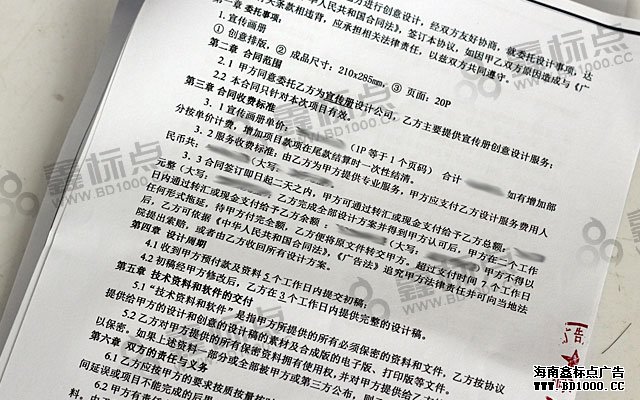 方进行创意设计，经双方友好协商，就委托设计事项，达
有关条款相违背，应承担相关法律责任，以兹双方共同遵守。
民共和国合同法》，签订本协议，如因甲乙双方原因造成与《广
第一章 委托事项：
1. 宣传画册
① 创意排版，② 成品尺寸：210x285mm，③ 页面：20P
第二章 合同范围
2.1 甲方同意委托乙方为宣传册设计公司，乙方主要提供宣传册创意设计服务；
2.2 本合同只针对本次项目有效。
第三章 合同收费标准
3.1 宣传画册单价：（1P等于1个页码） 合计 如有增加部
分按单价计费，增加项目款项在尾款结算时一次性结清。
3.2 服务收费标准：由乙方为甲方提供专业服务，甲方应支付乙方设计服务费用人
民币共：（大写：
3.3 合同签订即日起二天之内，甲方可通过转汇或现金支付给予乙方总额：
元整（大写：乙方完成全部设计方案并得到甲方认可后，甲方在一个工作
日内通过转汇或现金支付给予乙方余额：（大写：甲方不得以
任何形式拖延，待甲方付完全额，乙方便将原文件转交甲方。超过支付时间7个工作日
后，乙方可依据《中华人民共和国合同法》，《广告法》追究甲方法律责任并可向当地法
院提出索赔，或者由乙方收回所有设计方案。
第四章 设计周期
4.1 收到甲方预付款及资料5个工作日内提交初稿；
4.2 初稿经甲方修改后，乙方在3个工作日内提供完整的设计稿。
第五章 技术资料和软件的交付
5.1 “技术资料和软件”是指甲方所提供的所有必须保密的资料和文件，乙方按协议
提供给甲方的设计和创意的设计稿的素材及合成版的电子版、打印版等文件。
5.2 乙方对甲方提供的所有保密资料拥有使用权，并对甲方提供给乙方
以保密。如果上述资料，部分或全部被甲方或第三方公布，则
第六章 双方的责任与义务
6.1 乙方应按甲方的要求按质按量按
间延误或项目不能完成的后果
6.2 甲方有责
鑫标点
WWW.BD1000.COM
海南鑫标点广告
WWW.BD1000.COM